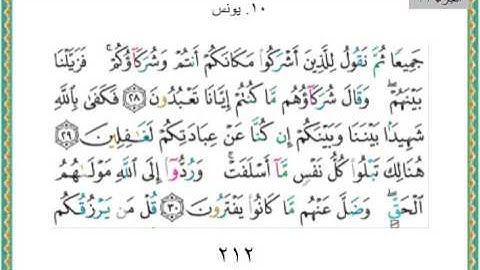 ١٠. يونس
جَمِيعًا ثُمَّ نَقُولُ لِلَّذِينَ أَشْرَكُوا مَكَانَكُمْ أَنتُمْ وَشُرَكَاؤُكُمْ ۚ فَزَيَّلْنَا
بَيْنَهُمْ ۖ وَقَالَ شُرَكَاؤُهُم مَّا كُنتُمْ إِيَّانَا تَعْبُدُونَ ﴿٢٨﴾ فَكَفَىٰ بِاللَّهِ
شَهِيدًا بَيْنَنَا وَبَيْنَكُمْ إِن كُنَّا عَنْ عِبَادَتِكُمْ لَغَافِلِينَ ﴿٢٩﴾
هُنَالِكَ تَبْلُوا كُلُّ نَفْسٍ مَّا أَسْلَفَتْ ۚ وَرُدُّوا إِلَى اللَّهِ مَوْلَاهُمُ
الْحَقِّ ۖ وَضَلَّ عَنْهُم مَّا كَانُوا يَفْتَرُونَ ﴿٣٠﴾ قُلْ مَن يَرْزُقُكُم
٢١٢